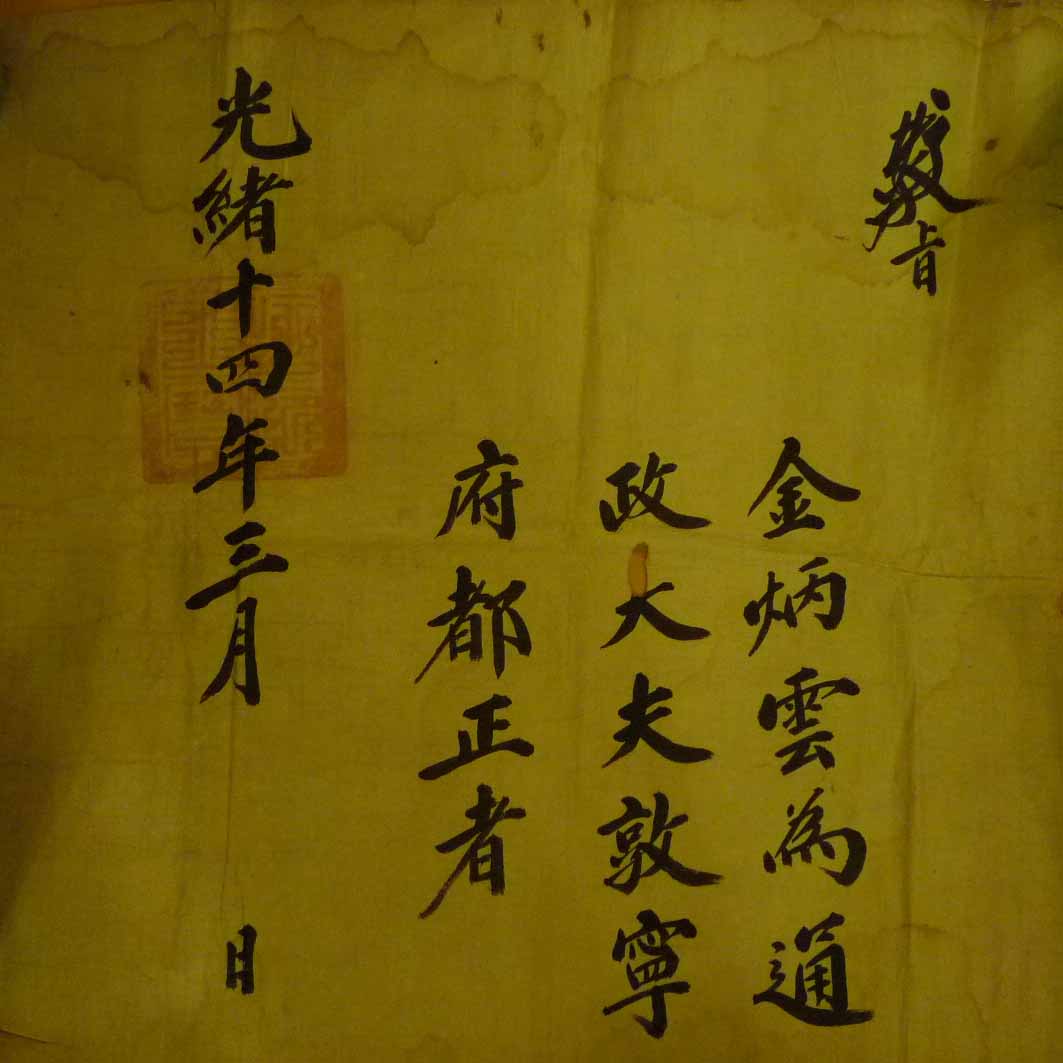 敎旨
金炳雲為通
政大夫敦寧
府都正者
光緒十四年三月 日